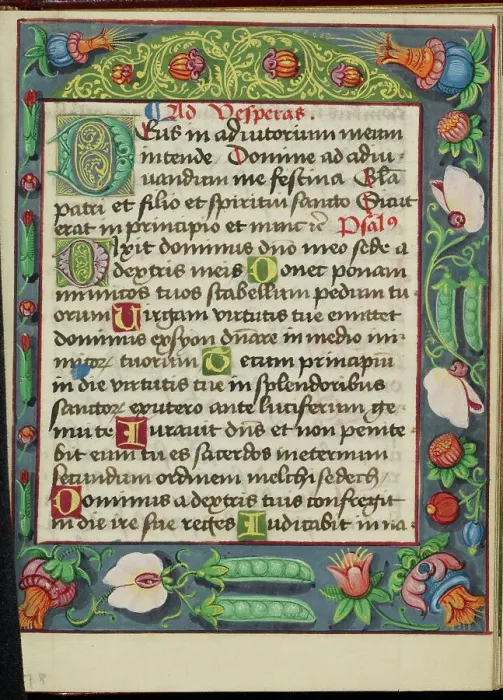 Ad Vesperas.
Deus in adiutorium meum
intende Domine ad adiu-
uandum me festina Gła
patri et filio et spiritui sancto Sicut
erat in principio et nunc ic̄ Psal9
Dixit dominus dn̄o meo sede a
dextris meis Donec ponam
inimicos tuos scabellum pedum tu-
orum Uirgam virtutis tue emittet
dominus exsyon dn̄are in medio ini-
micoꝝ tuorum Tecum principiū
in die virtutis tue in splendoribus
sanctoꝝ exutero ante luciferum ge-
nui te Iurauit dn̄s et non penite-
bit eum tu es sacerdos ineternum
secundum ordinem melchisedech
Dominus adextris tuis confregit
in die ire sue reges Iudicabit in na-
78